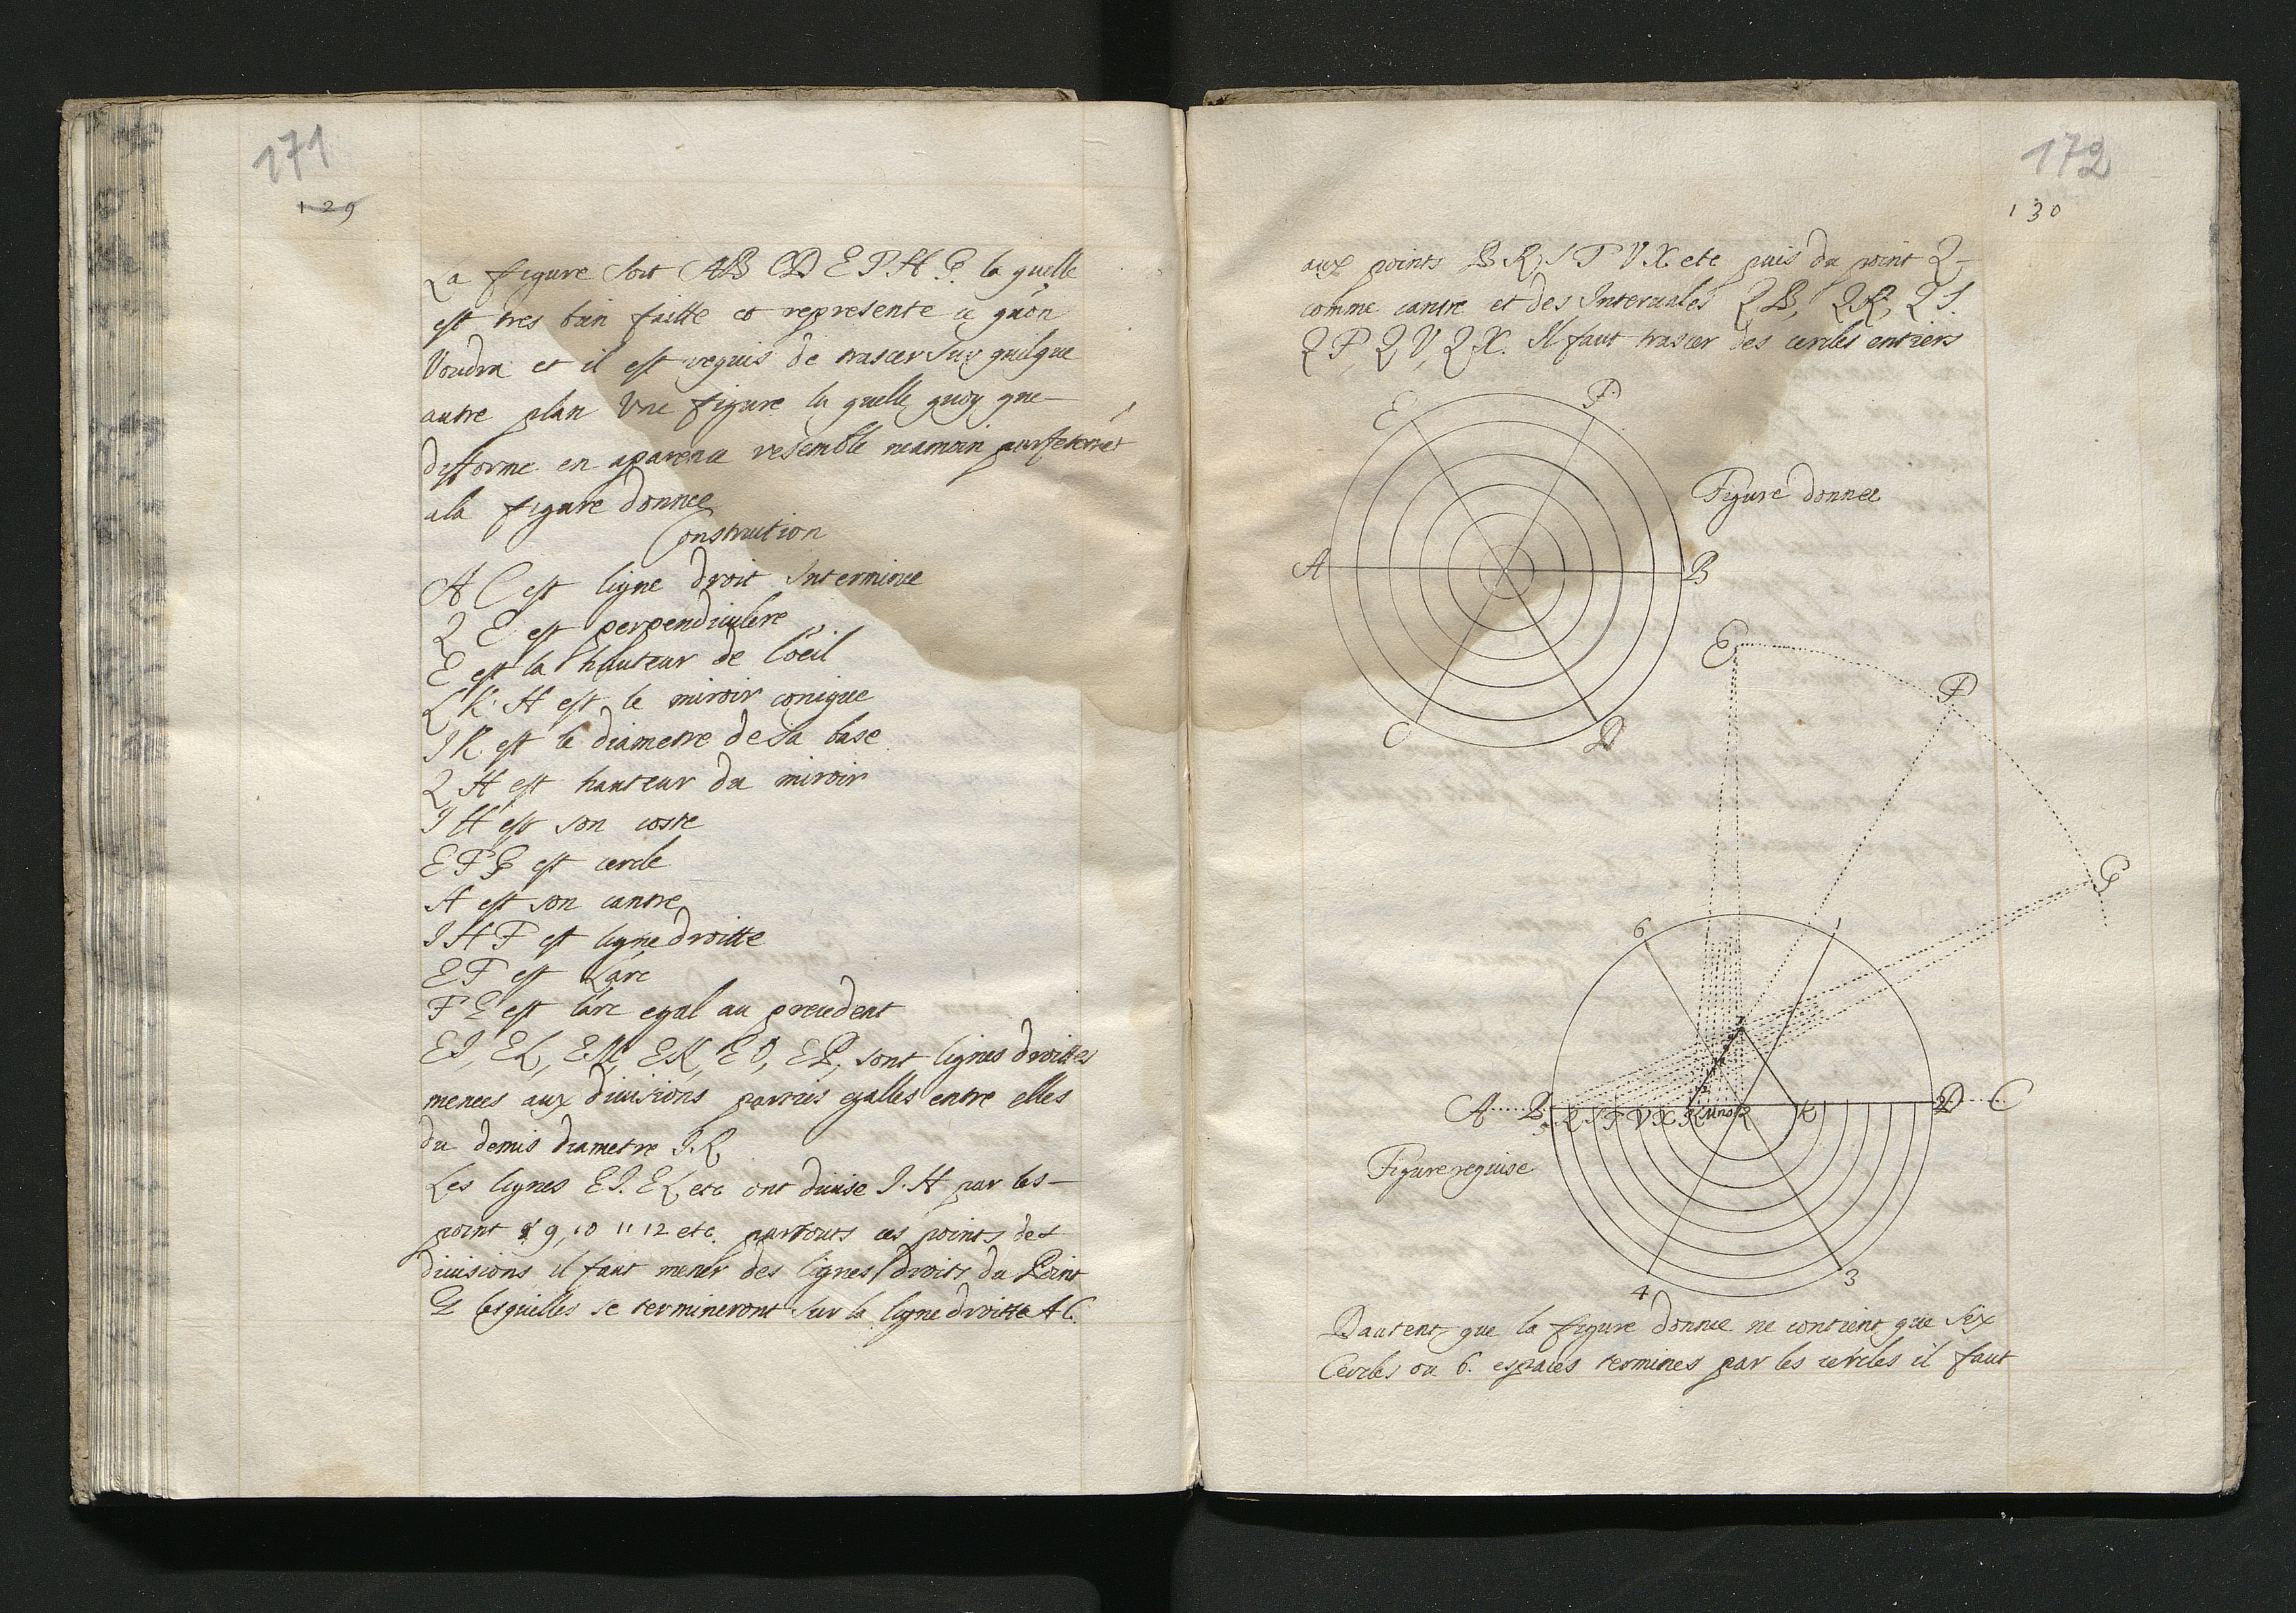 171
129
La figure soit AB CD E F H G la quelle
est tres bien faitte et represente ce qu'on
Voudra et il est requis de trascer sur quelque
autre plan Une figure la quelle quoy que
difforme en aparence resemble neamoin
a la figure donnee
Construction
A C est ligne droit Interminee
Q E est perpendiculere
E est la hauteur de l'oeil
K H est le miroir conique
I K est le diametre de sa base
Q H est hauteur du miroir
I H est son coste
E F G est cercle
H est son cantre
I H F est ligne droitte
E F est L'arc
F G est l'arc egal au precedent
EI, EL, EM, EN, EO, EP, sont lignes droittes
menees aux divisions parties egalles entre elles
du demis diametre I.Q
Les lignes EI. EL etc ont divise I.H par les
point 8 9, 10 11 12 etc. par touts ces points des
divisions il faut mener des lignes droits du Point
G lesquelles se termineront sur la ligne droitte A C.
172
130
aux points B R S T V X etc puis du point Q
comme cantre et des Intervales QB, QR, QS.
QT, QV, QX. Il faut trascer des cercles entiers
E F
Figure donnee
A B
C D
E
F
G
6 1
A B R S T V X K D C
Figure requise
4 3
Dautent que la figure donnee ne contient que Six
Cercles ou 6. espaces termines par les cercles il faut